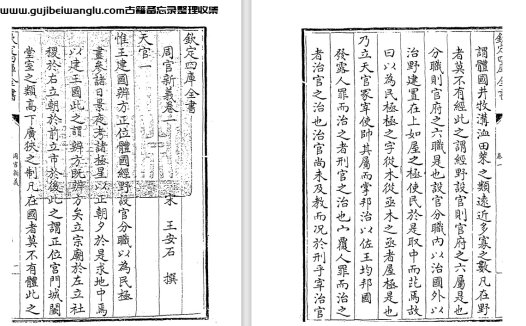 www.gujibeiwanglu.com古籍备忘录整理收集
欽定四庫全書
周官新義卷一
宋 王安石 撰
天官一
惟王建國辨方正位體國經野設官分職以為民極
晝參諸日景夜考諸極星以正朝夕於是求地中焉
以建王國此之謂辨方既辨方矣立宗廟於左立社
稷於右立朝於前立市於後此之謂正位宮門城闕
堂室之類高下廣狹之制凡在國者莫不有體此之
欽定四庫全書
周官新義
欽定四庫全書
卷一
謂體國井牧溝洫田萊之類遠近多寡之數凡在野
者莫不有經此之謂經野設官則官府之六屬是也
分職則官府之六職是也設官分職內以治國外以
治野建置在上如屋之極使民於是取中而芘焉故
曰以為民極極之字從木從亟木之亟者屋極是也
乃立天官冢宰使帥其屬而掌邦治以佐王均邦國
發露人罪而治之者刑官之治也宀覆人罪而治之
者治官之治也治官尚未及教而況於刑乎宰治官